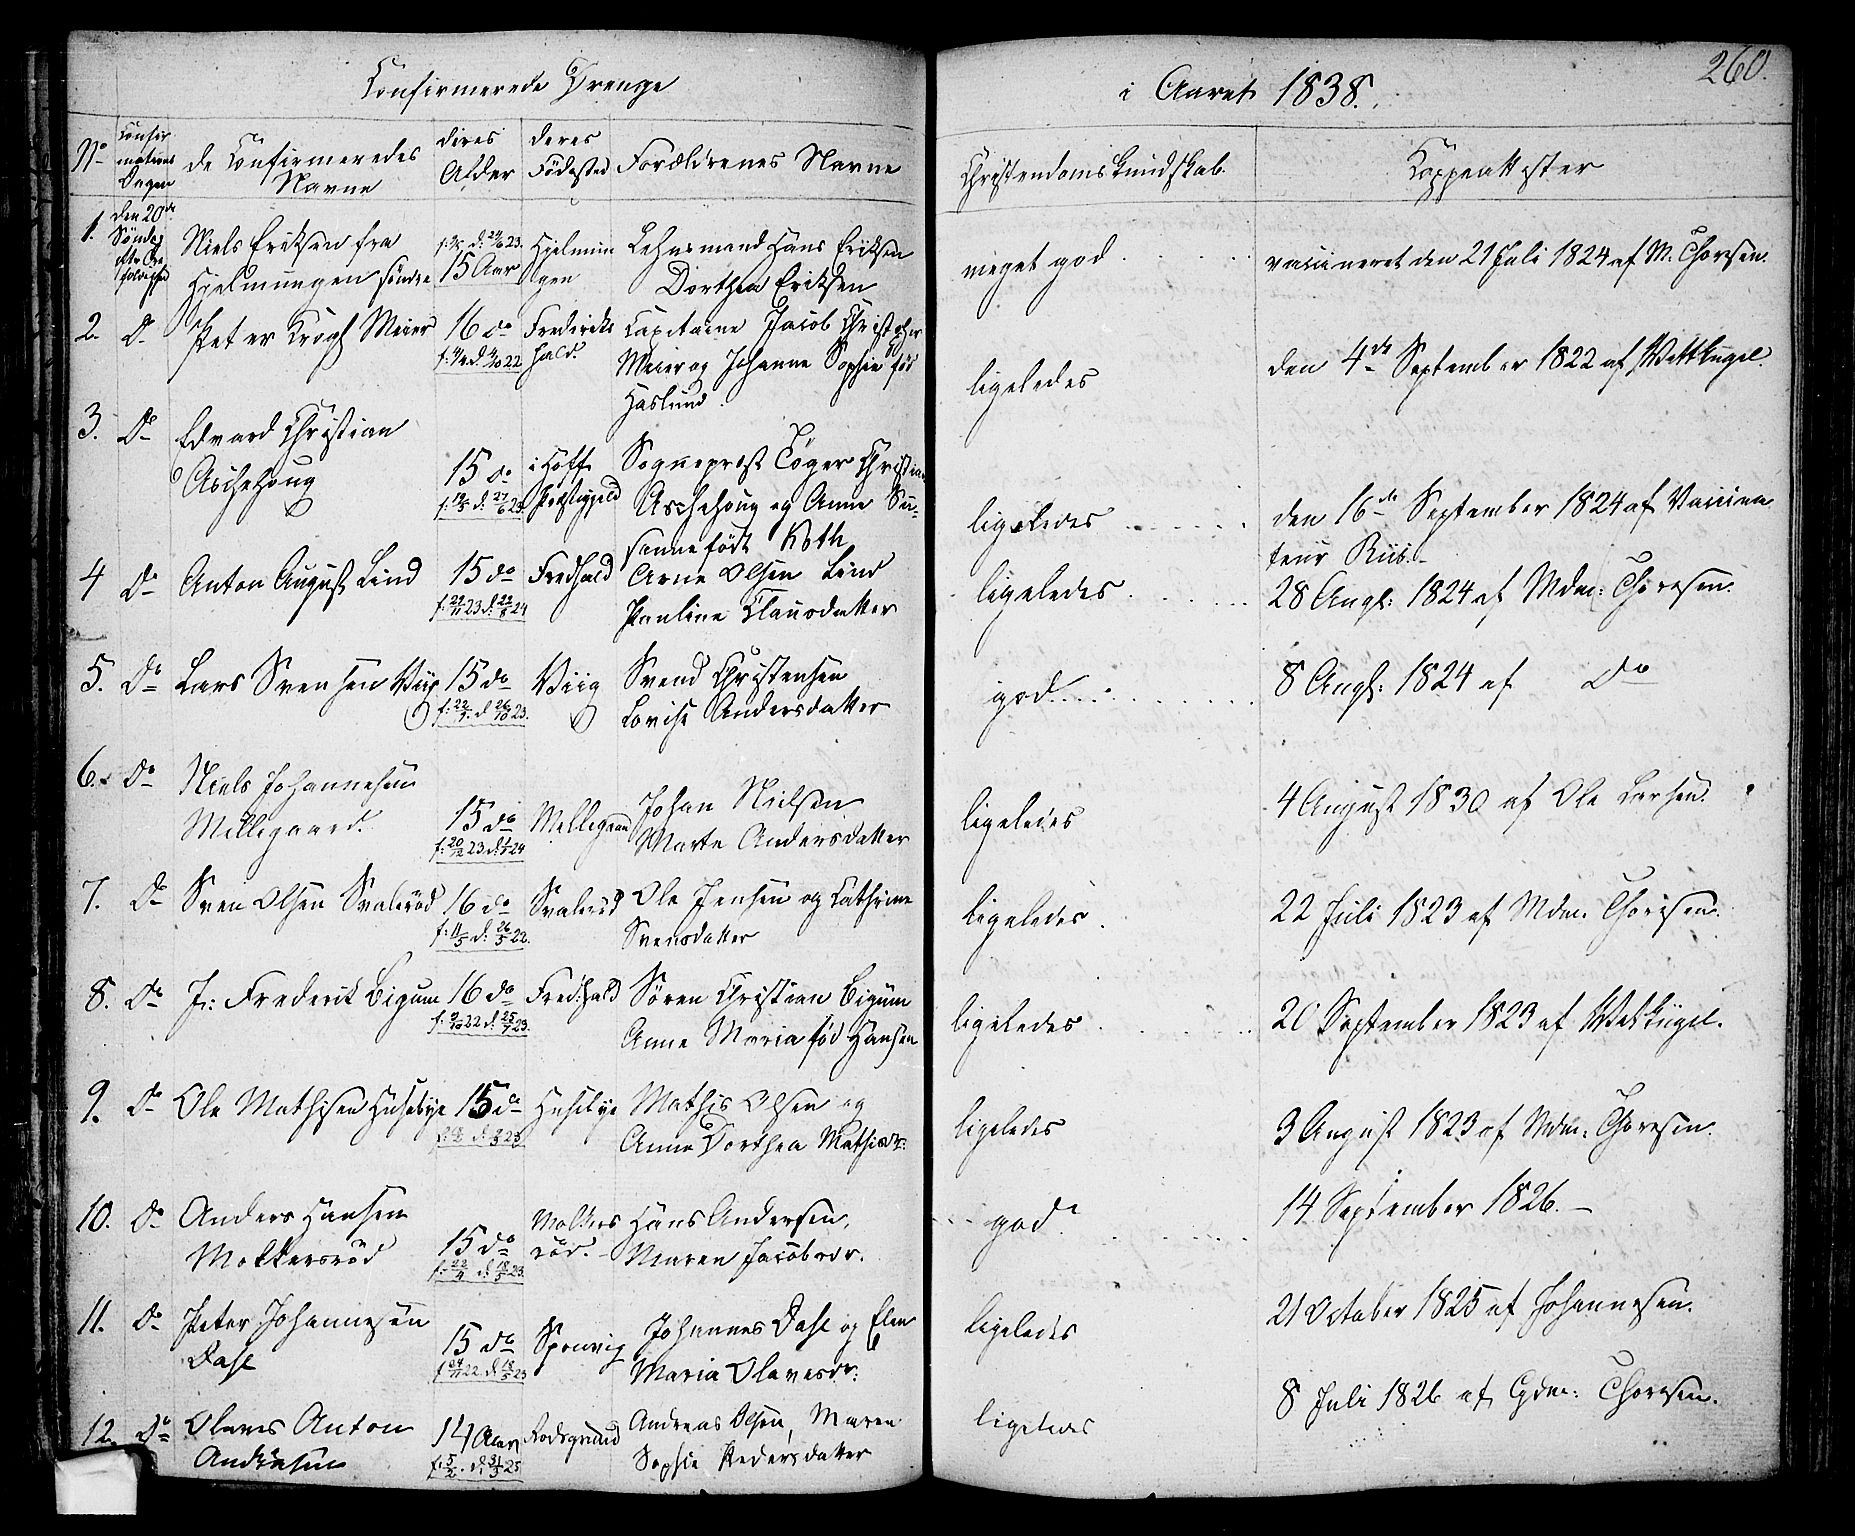 Confirmerede Drenge
i Aaret 1838.
260.
No
Confir
mations
Dagen
de Confirmeredes
Navne
deres
Alder
deres
Fødested
Forældrenes Navne
Christendoms Kundskab.
Koppeattester
1.
den 20de
Søndag
efter
Niels Eriksen fra
Hjelmungen søndre
15 Aar
Hjelmun
gen
Lehnsmand Hans Eriksen
Dorthea Eriksen
meget god
vaccineret den 21 Juli 1824 af M. Thoresen.
2.
Do
Peter Krogh Meier
16 do
Fredriks
hald.
Capitaine Jacob Christopher
Meier og Johanne Sophie fød
Haslund.
ligeledes
den 4de September 1822 af Wettkugel.
3.
Do
Edvard Christian
Aschehoug
15 do
i Hoff
Præstegjeld
Sognepræst Tøger Christian
Aschehoug og Anne Su-
sanne født Roth
ligeledes
den 16de September 1824 af Vaccina
teur Riis.
4
Do
Anton August Lind
15 do
f: 29/11 23 d: 22/2 24
Fredhald
Arne Olsen Lind
Pauline Clausdatter
ligeledes
28 Augs: 1824 af Mdm: Thoresen.
5.
Do
Lars Svensen Viig
15 do
f: 22/9. d. 26/10 23.
Viig
Svend Christensen
Lovise Andersdatter
god
8 Augs: 1824 af Do
6.
Do
Niels Johannesen
Millegaard.
15 do
Millegaard
Johan Nielsen
Marte Andersdatter
ligeledes
4 August 1830 af Ole Larsen.
7.
Do
Sven Olsen Svalerød
16 do
f: 11/5 d: 26/5 22.
Svalerød
Ole Jensen og Cathrine
Svensdatter
ligeledes.
22 Juli 1823 af Mdm. Thoresen.
8.
Do
J: Frederik Bigum
16 do
Fred:hald
Søren Christian Bigum
Anne Maria fød Hansen
ligeledes
20 September 1823 af Wetkugel.
9.
Do
Ole Mathisen Husebye
15 do
Husebye
Mathis Olsen og
Anne Dorthea Mathisdr:
ligeledes
3 August 1823 af Mdm. Thoresen.
10.
Do
Anders Hansen
Molkersrød
15 do
f: 22/4 d: 18/5 23
Molkers
rød.
Hans Andersen,
Maren Jacobsdr.
god
14 September 1826. –
11.
Do
Peter Johannesen
Dahl
15 do
Sponvig
Johannes Dahl og Elen
Maria Olavesdr:
ligeledes
21 October 1825 af Johannesen.
12.
Do
Olaves Anton
Andreasen
14 Aar
Rødsgrund
Andreas Olsen, Maren
Sophie Pedersdatter
ligeledes
8 Juli 1826 af Gdm: Thoresen.